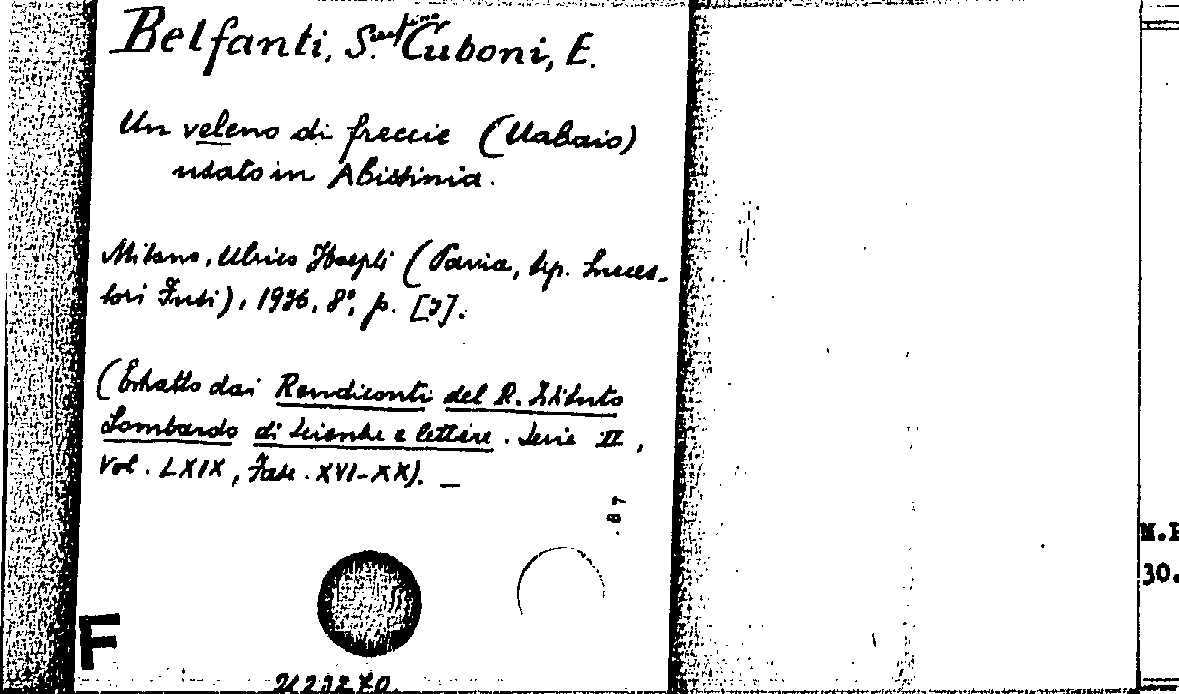 Belfanti, S. Cuboni, E.
Un veleno di freccie (Uabaio)
usato in Abissinia.
Milano, Ulrico Hoepli (Pavia, tip. Succes-
sori Fusi), 1936, 8°, p. [7].
(Estratto dai Rendiconti del R. Istituto
Lombardo di Scienze e lettere. Serie II,
Vol. LXIX, Fasc. XVI-XX). —
.87
F
30.